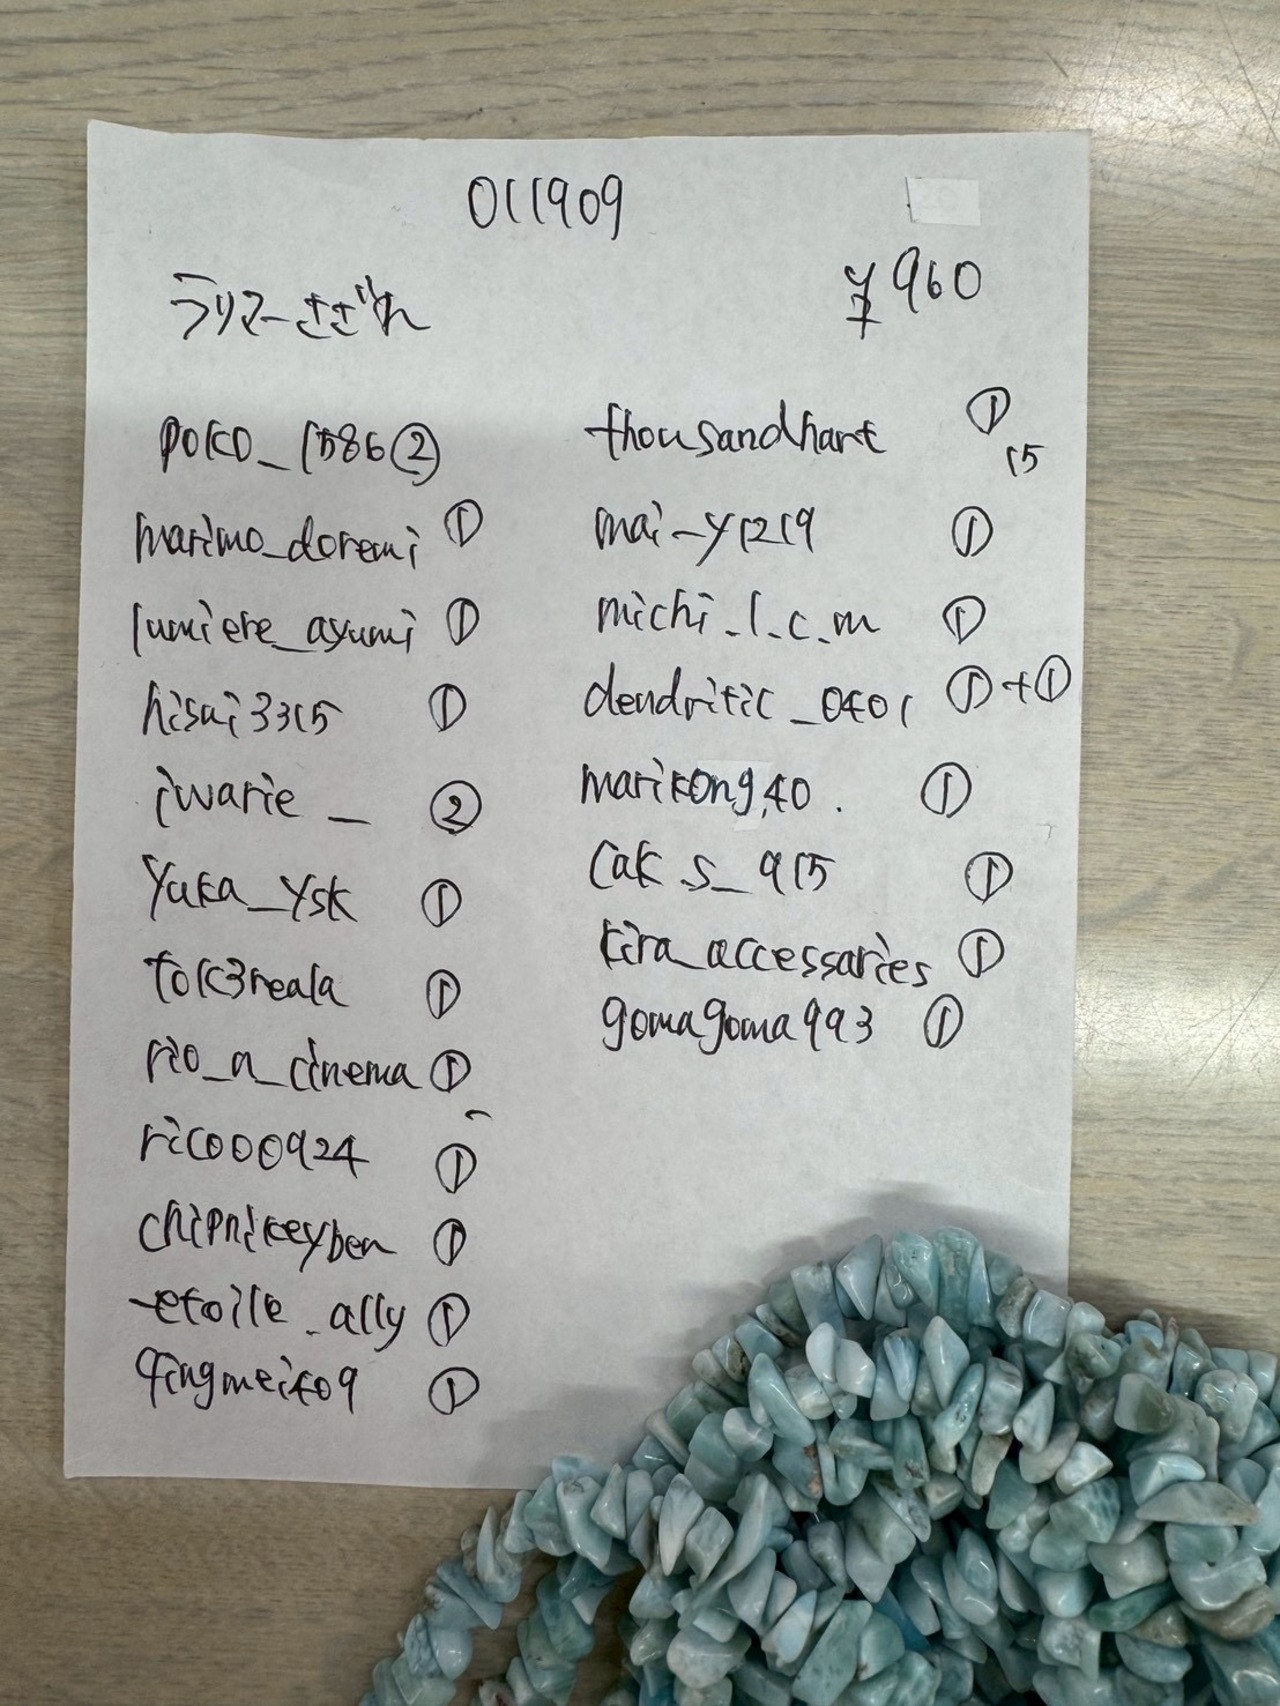 011909
¥960
ラリマーさざれ
poko_1586 ②
marimo_doremi ①
lumiere_ayumi ①
hisai3315 ①
iwarie_ ②
yuka_ysk ①
tok3reala ①
rio_a_cinema ①
rico00924 ①
chipnikeyben ①
etoile_ally ①
qingmei409 ①
thousandhart ①
15
mai-y1219 ①
michi.l.c.m ①
dendritic_0401 ①+①
marikong40. ①
cak.s_915 ①
kira_accessaries ①
gomagoma993 ①